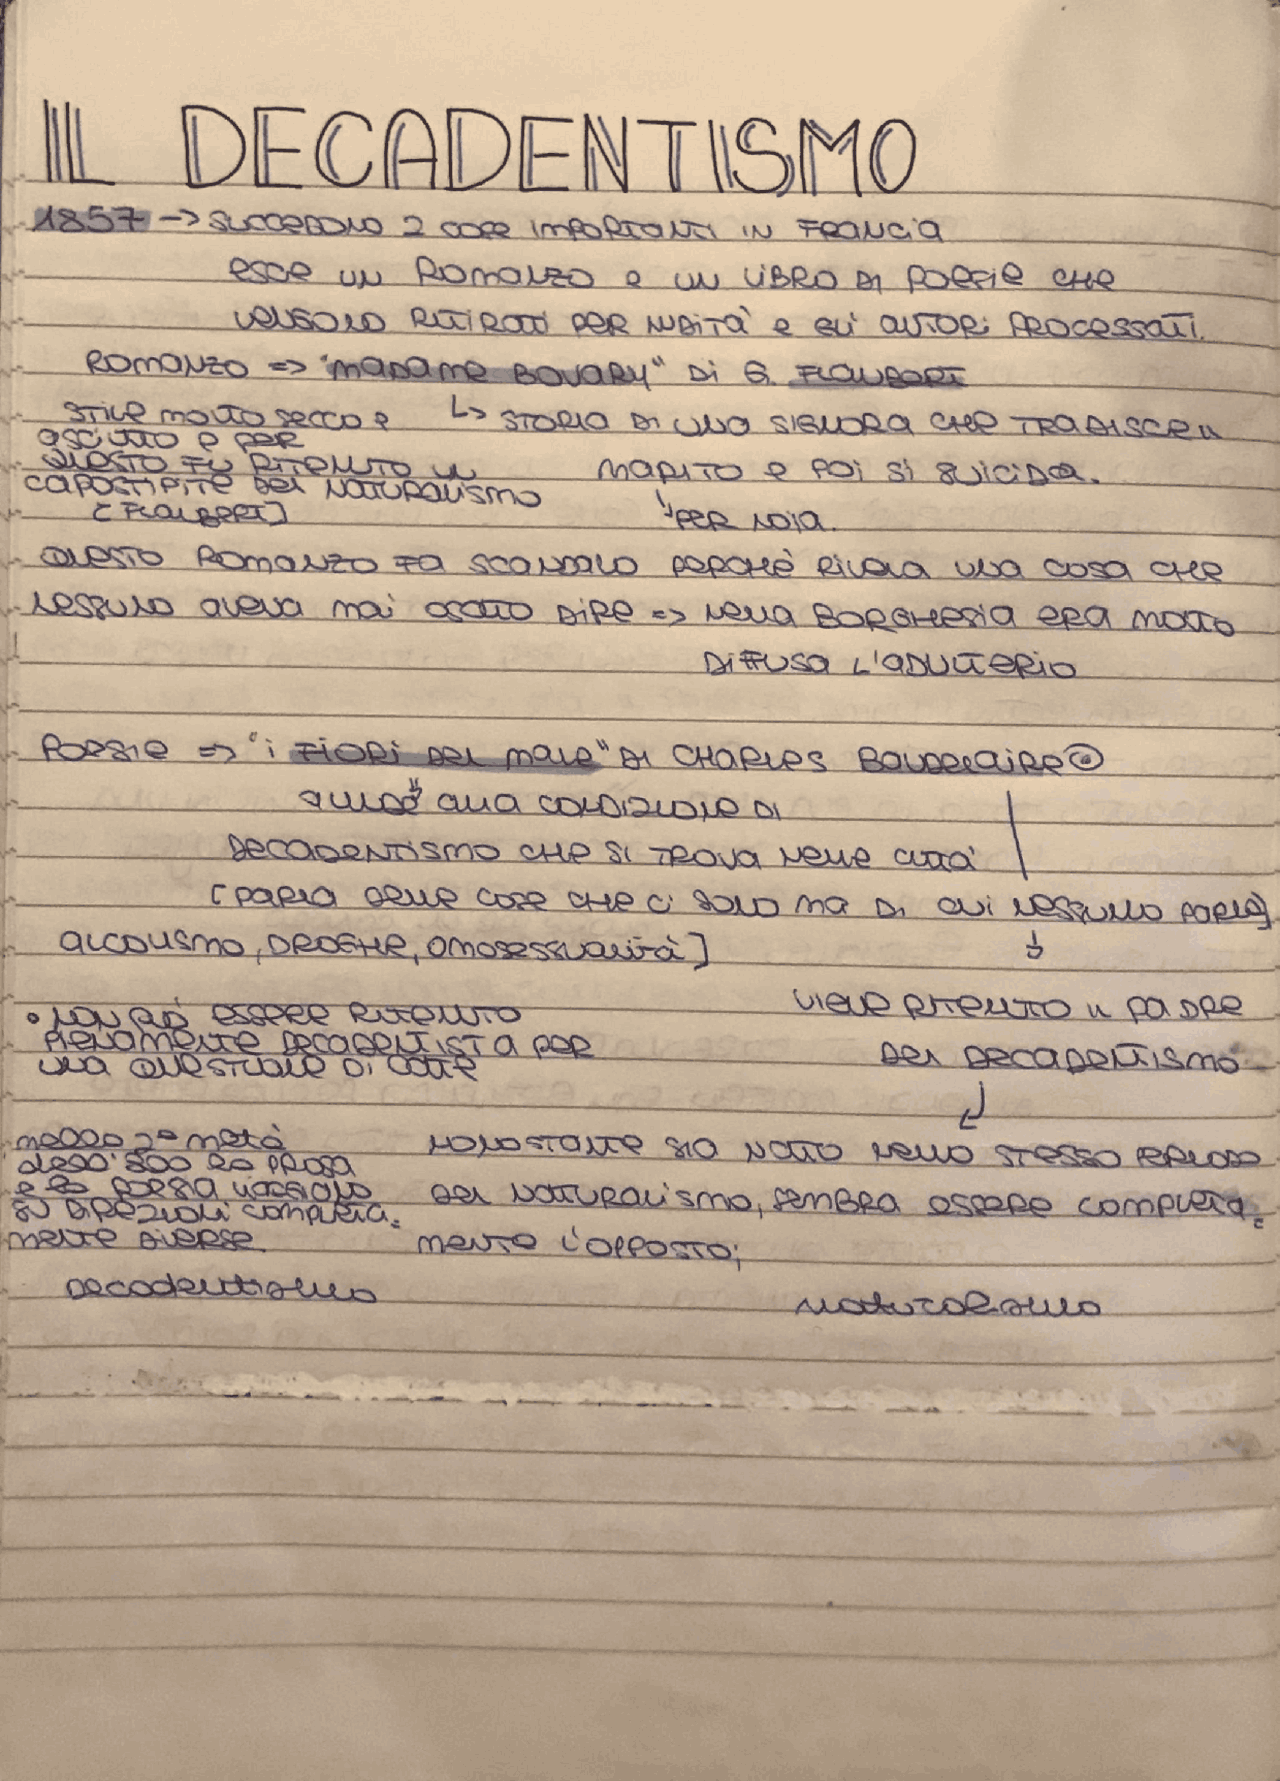 IL DECADENTISMO
1857 -> SUCCEDONO 2 COSE IMPORTANTI IN FRANCIA
ESCE UN ROMANZO E UN LIBRO DI POESIE CHE
VENGONO RITIRATI PER NUDITÀ E GLI AUTORI PROCESSATI.
ROMANZO => "MADAME BOVARY" DI G. FLAUBERT
STILE MOLTO SECCO E
ASCIUTTO E PER
QUESTO FU RITENUTO IL
CAPOSTIPITE DEL NATURALISMO
[FLAUBERT]
↳ STORIA DI UNA SIGNORA CHE TRADISCE IL
MARITO E POI SI SUICIDA.
↳ PER NOIA.
QUESTO ROMANZO FA SCANDALO PERCHÈ RIVELA UNA COSA CHE
NESSUNO AVEVA MAI OSATO DIRE => NELLA BORGHESIA ERA MOLTO
DIFFUSA L'ADULTERIO
POESIE => "I FIORI DEL MALE" DI CHARLES BAUDELAIRE
ALLUDE ALLA CONDIZIONE DI
DECADENTISMO CHE SI TROVA NELLE CITTÀ
[PARLA DELLE COSE CHE CI SONO MA DI CUI NESSUNO PARLA]
ALCOLISMO, DROGHE, OMOSESSUALITÀ]
• NON PUÒ ESSERE RITENUTO
PIENAMENTE DECADENTISTA PER
UNA QUESTIONE DI DATE
VIENE RITENUTO IL PADRE
DEL DECADENTISMO
NELLA 2ª METÀ
DELL'800 LA PROSA
E LA POESIA VIAGGIANO
SU DIREZIONI COMPLETA=
MENTE DIVERSE.
NONOSTANTE SIA NATO NELLO STESSO PERIODO
DEL NATURALISMO, SEMBRA ESSERE COMPLETA=
MENTE L'OPPOSTO;
Decadentismo
Naturalismo